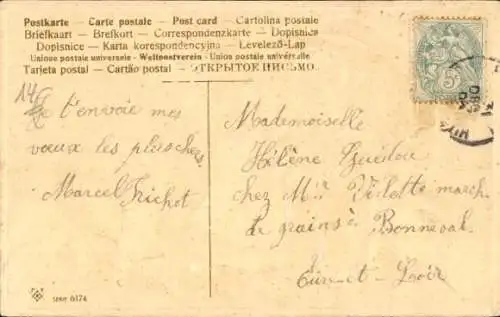 Postkarte - Carte postale - Post card - Cartolina postale
Briefkaart - Brefkort - Correspondenzkarte - Dopisnica
Dopisnice - Karta korespondencyjna - Levelező-Lap
Unione postale universale - Weltpostverein - Union postale universelle
Tarjeta postal - Cartão postal - ОТКРЫТОЕ ПИСЬМО.
Je t'envoie mes
vœux les plus chers
Marcel Frichot
Mademoiselle
Hélène
chez Mr Violette march
de grains à Bonneval
Eure-et-Loir
5
DEC
Serie 6174